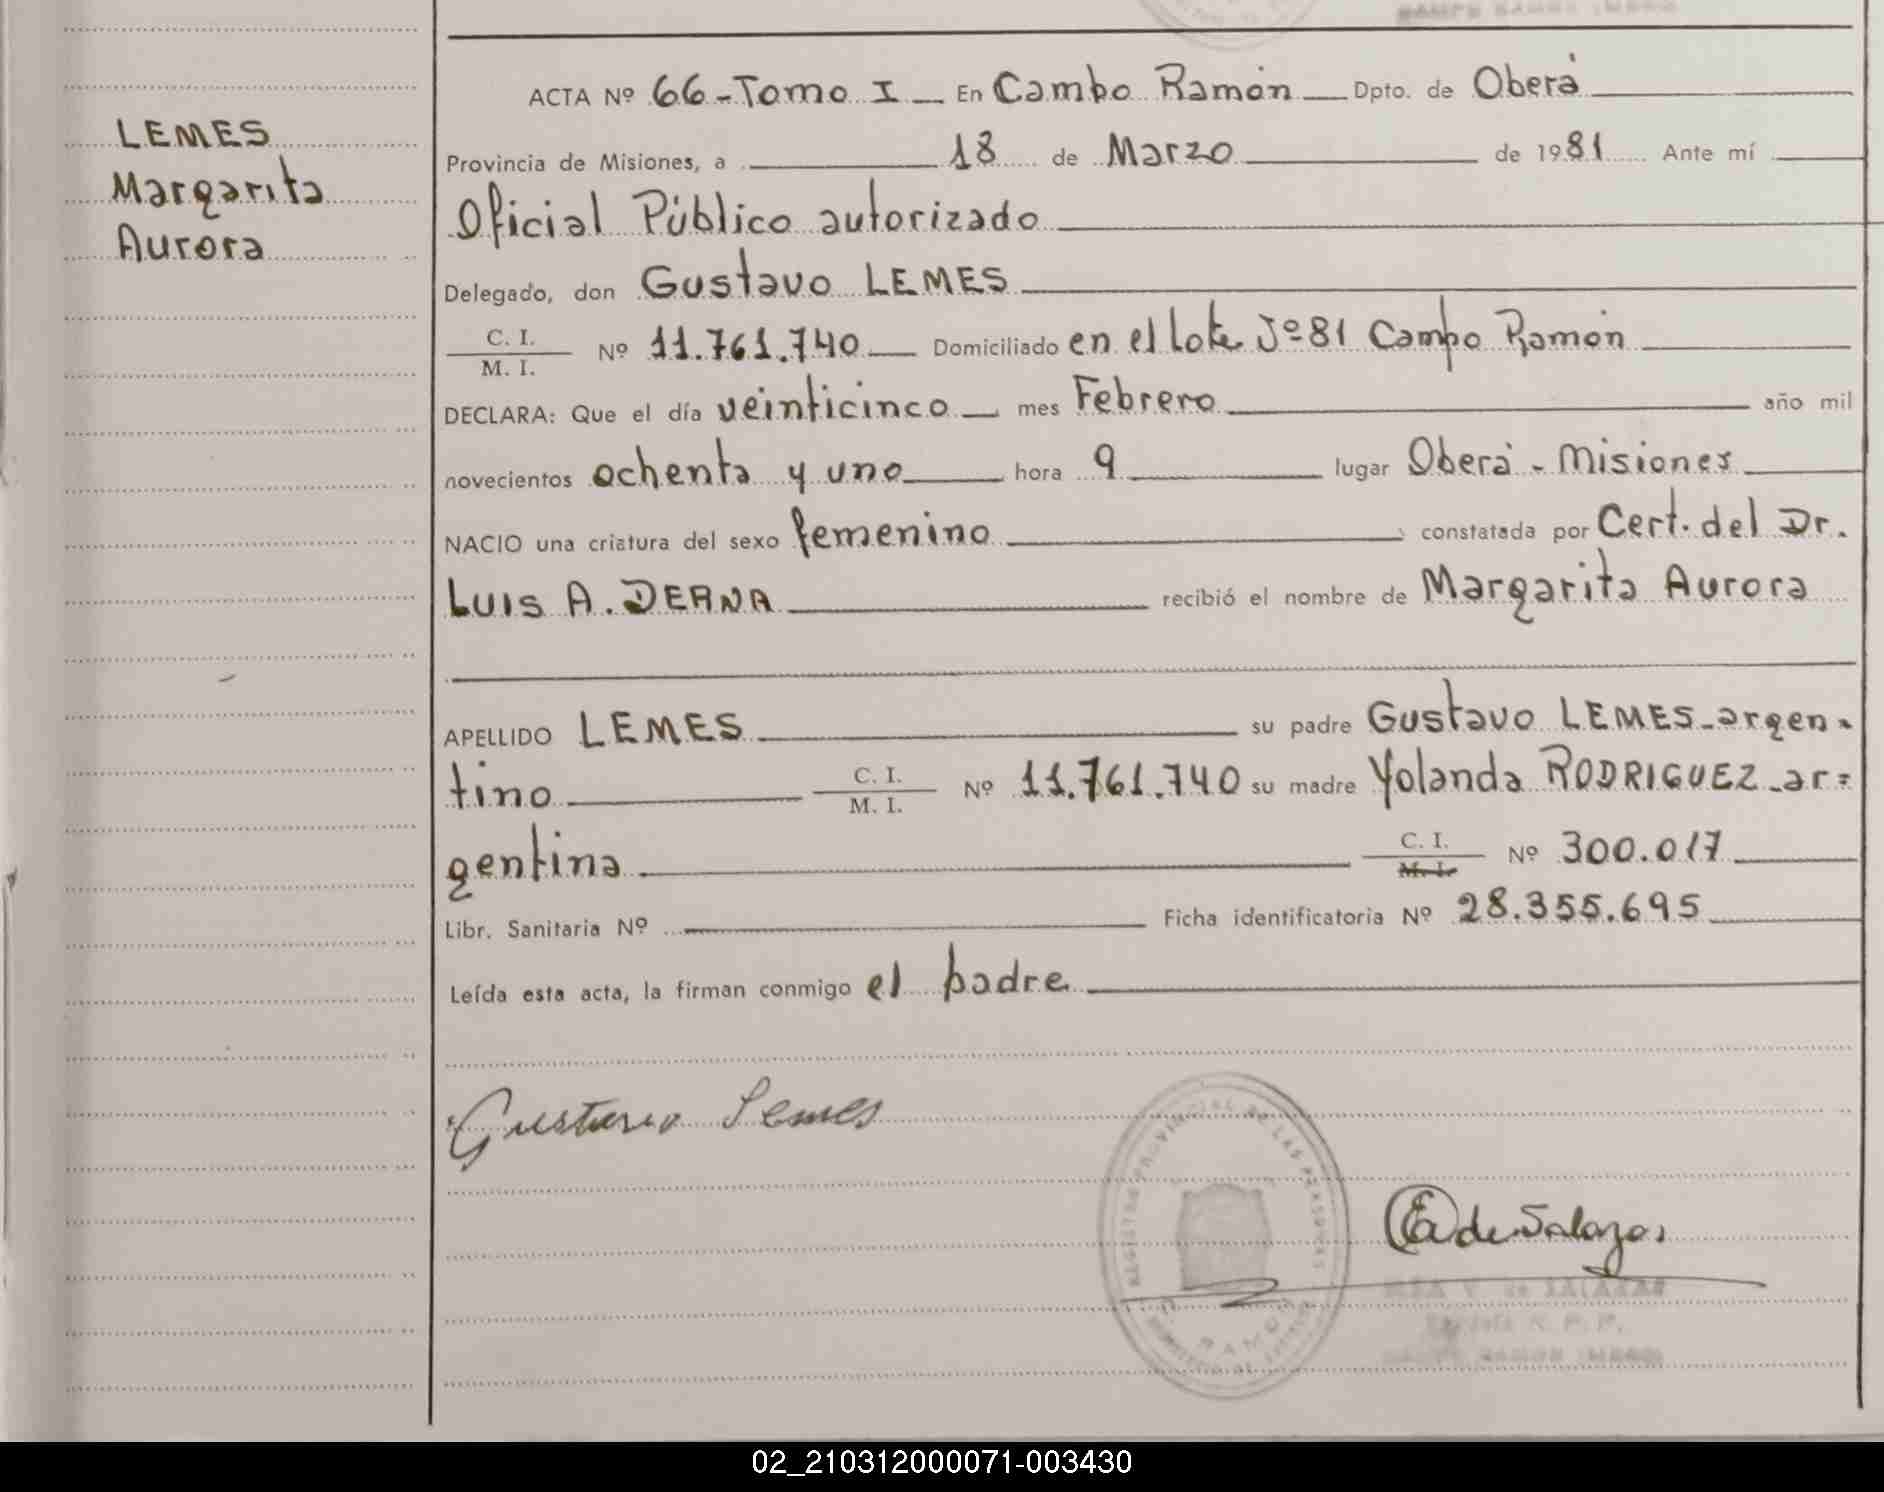 LEMES
Margarita
Aurora
ACTA Nº 66-Tomo I En Campo Ramón Dpto. de Oberá
Provincia de Misiones, a 18 de Marzo de 1981 Ante mí
Oficial Público autorizado
Delegado, don Gustavo LEMES
C. I.
M. I. Nº 11.761.740 Domiciliado en el Lote Jº 81 Campo Ramón
DECLARA: Que el día veinticinco mes Febrero año mil
novecientos ochenta y uno hora 9 lugar Oberá - Misiones
NACIO una criatura del sexo femenino constatada por Cert. del Dr.
LUIS A. DERNA recibió el nombre de Margarita Aurora
APELLIDO LEMES su padre Gustavo LEMES-argen-
tino C. I. M. I. Nº 11.761.740 su madre Yolanda RODRIGUEZ-ar=
gentina C. I. M. I. Nº 300.017
Libr. Sanitaria Nº Ficha identificatoria Nº 28.355.695
Leída esta acta, la firman conmigo el padre
Gustavo Lemes
REGISTRO PROVINCIAL DE LAS PERSONAS
de Salazar
02_210312000071-003430